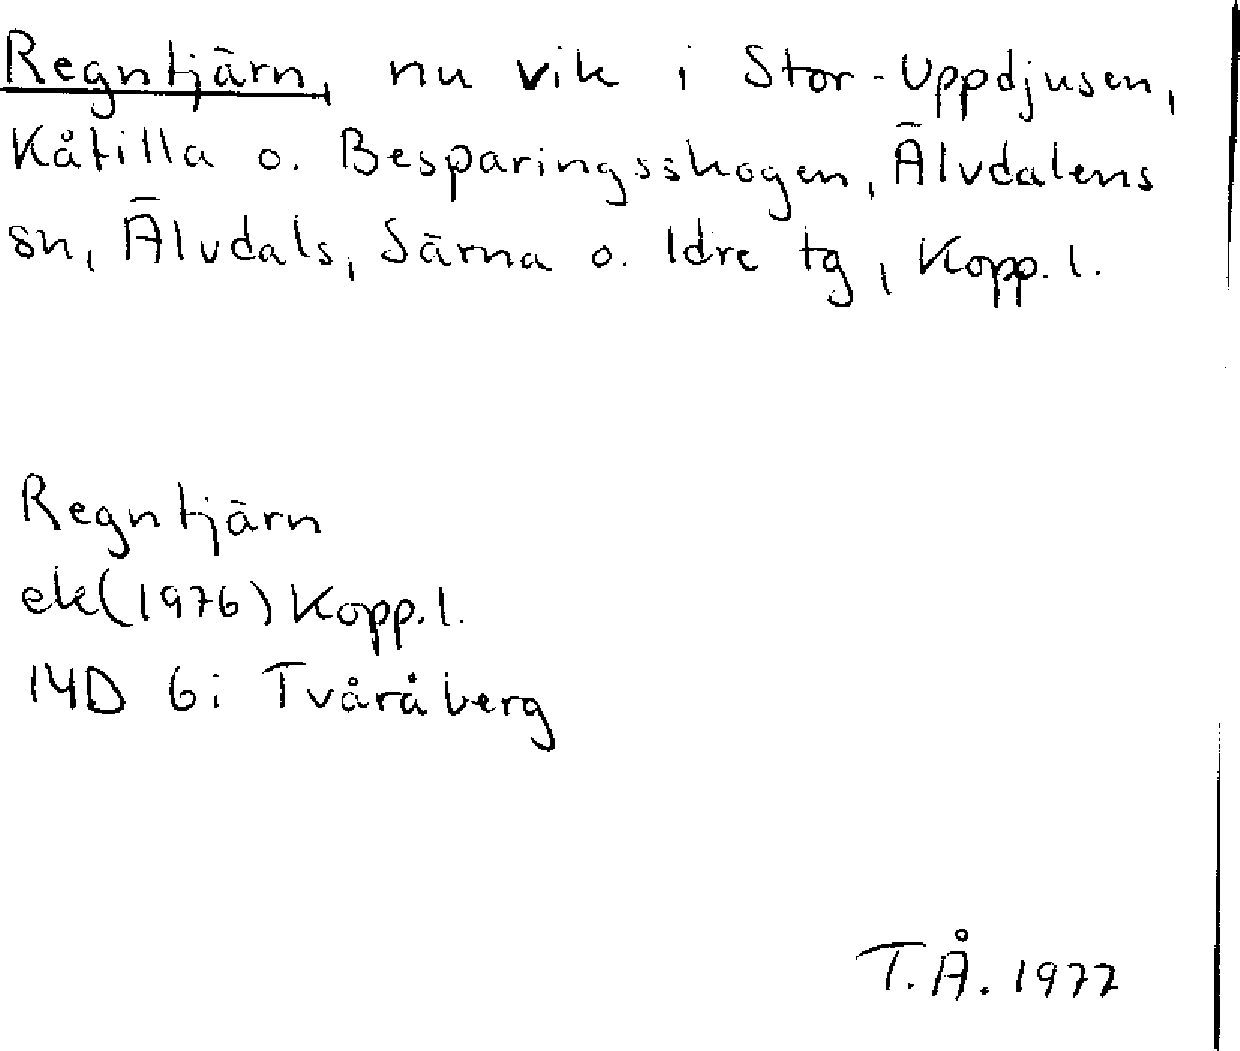 Regntjärn, nu vik i Stor-Uppdjusen,
Kåtilla o. Besparingsskogen, Älvdalens
sn, Älvdals, Särna o. Idre tg, Kopp. l.
Regntjärn
ek(1976) Kopp. l.
14D 6i Tvåråberg
T.Å. 1977